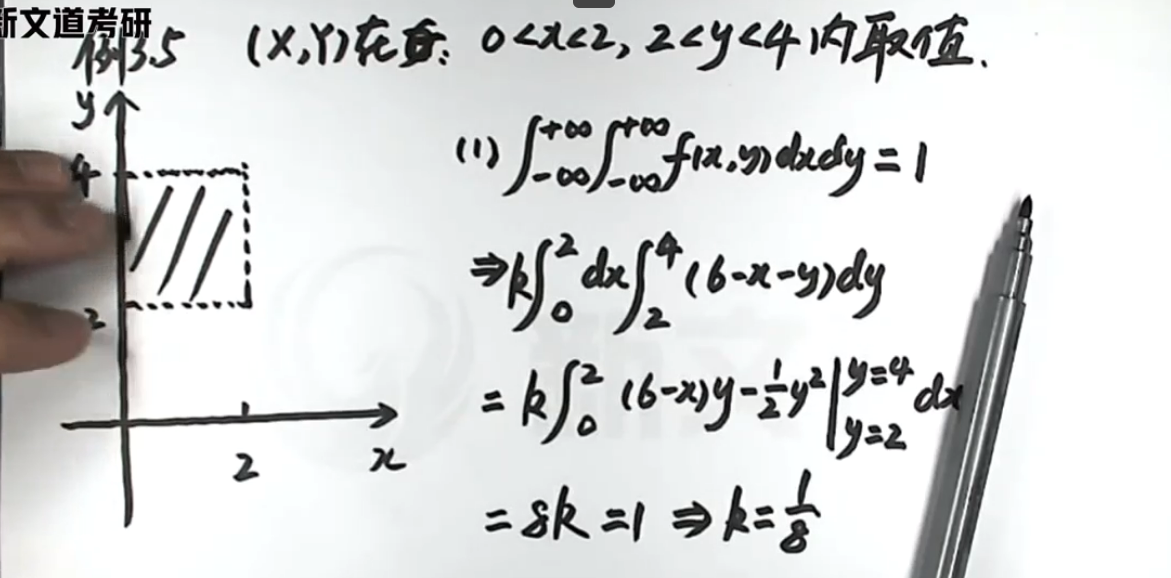 新文道考研
例3.5 (X,Y)在 : 0<x<2, 2<y<4内取值.
y
4
2
2
x
(1) ∫_{-∞}^{+∞}∫_{-∞}^{+∞}f(x,y)dxdy=1
⇒k∫_0^2dx∫_2^4(6-x-y)dy
=k∫_0^2 (6-x)y-1/2y²|_{y=2}^{y=4}dx
=8k=1⇒k=1/8